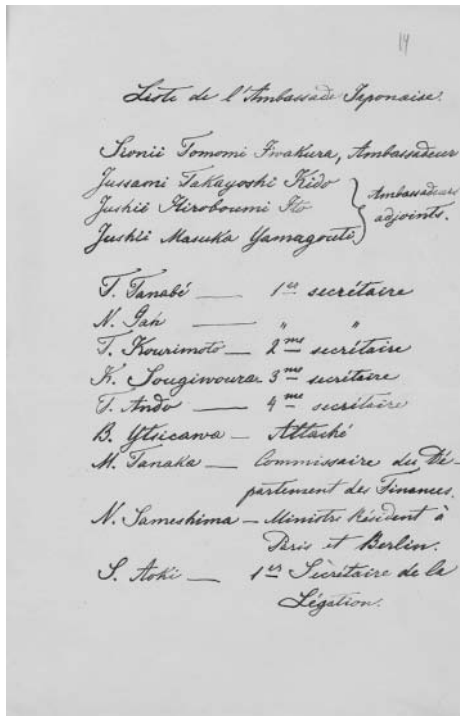 14
Liste de l'Ambassade Japonaise.
Sionii Tomomi Iwakura, Ambassadeur
Jussami Takayoshi Kido
Jushii Hiroboumi Ito
Jushii Masuka Yamagouti
Ambassadeurs
adjoints.
T. Tanabé — 1er secrétaire
N. Gah — " "
T. Kourimoto — 2me secrétaire
K. Sougiwoura 3me secrétaire
T. Ando — 4me secrétaire
B. Ytsicawa — Attaché
M. Tanaka — Commissaire du Dé-
partement des Finances.
N. Sameshima — Ministre Résident à
Paris et Berlin.
S. Aoki — 1er Secrétaire de la
Légation.